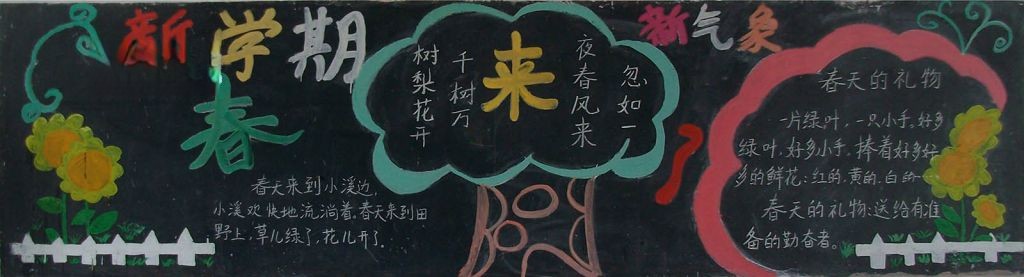 新学期
新气象
春
来
了
忽如一
夜春风来
千树万
树梨花开
春天来到小溪边,
小溪欢快地流淌着。春天来到田
野上,草儿绿了,花儿开了。
春天的礼物
一片绿叶,一只小手。好多
绿叶,好多小手。捧着好多好
多的鲜花:红的、黄的、白的…
春天的礼物:送给有准
备的勤奋者。